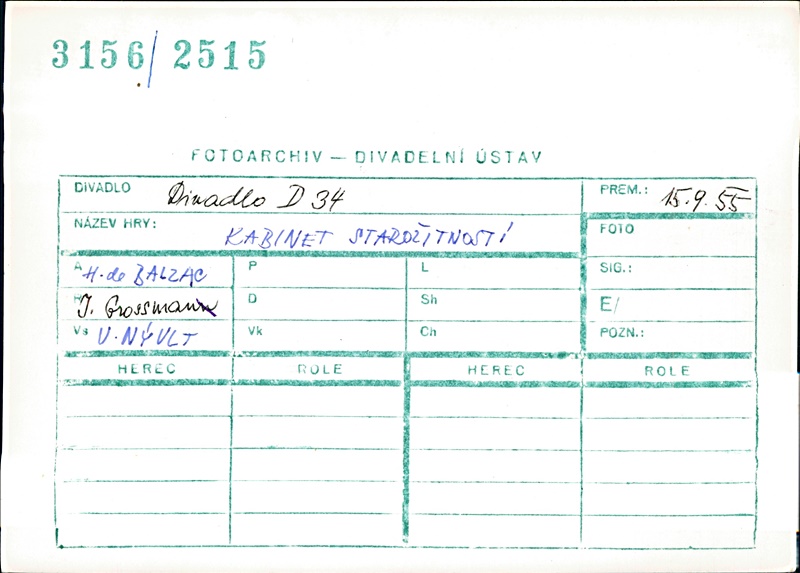 3156/2515
FOTOARCHIV — DIVADELNÍ ÚSTAV
DIVADLO Divadlo D 34 PREM.: 15.9.55
NÁZEV HRY: KABINET STAROŽITNOSTÍ FOTO
A H. de BALZAC P L SIG.:
J. Grossman D Sh E/
Vs V. NÝVLT Vk Ch POZN.:
HEREC ROLE HEREC ROLE